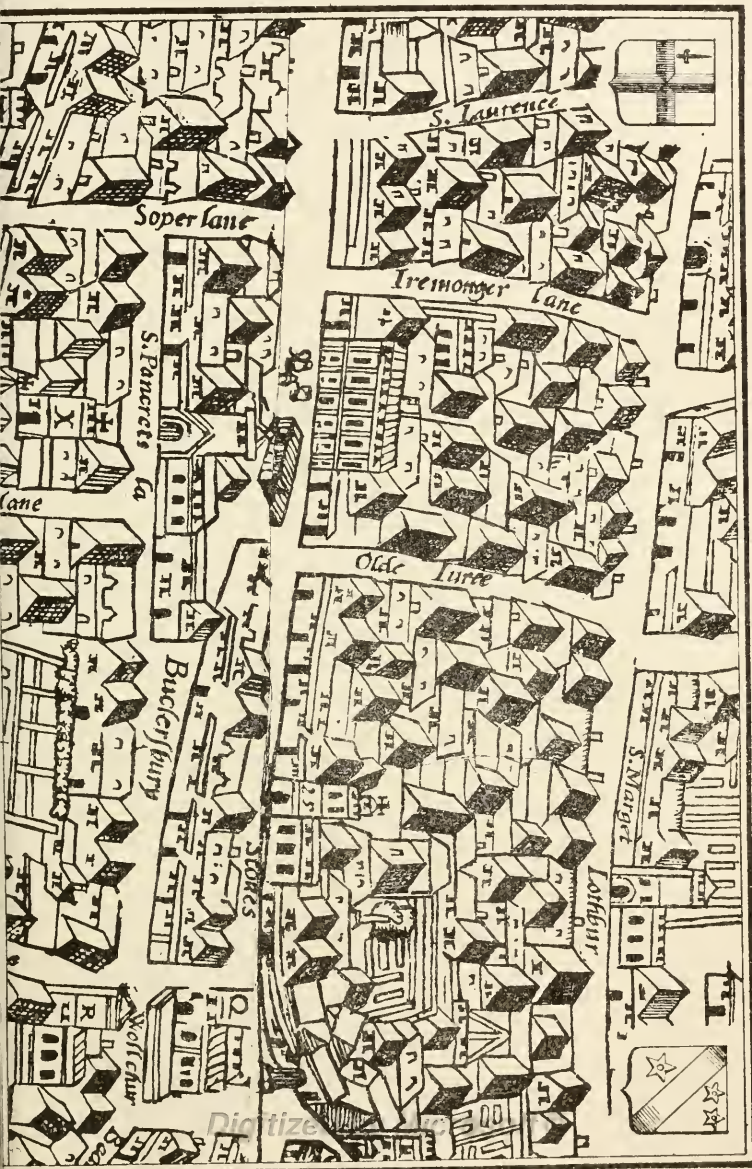 S. Laurence
Soper lane
Iremonger lane
S. Pancrets la
lane
Olde Iuree
Buclersbury
S. Marget
Lothbur
Stones
25
X
R
Q
Wollchur
Digitize